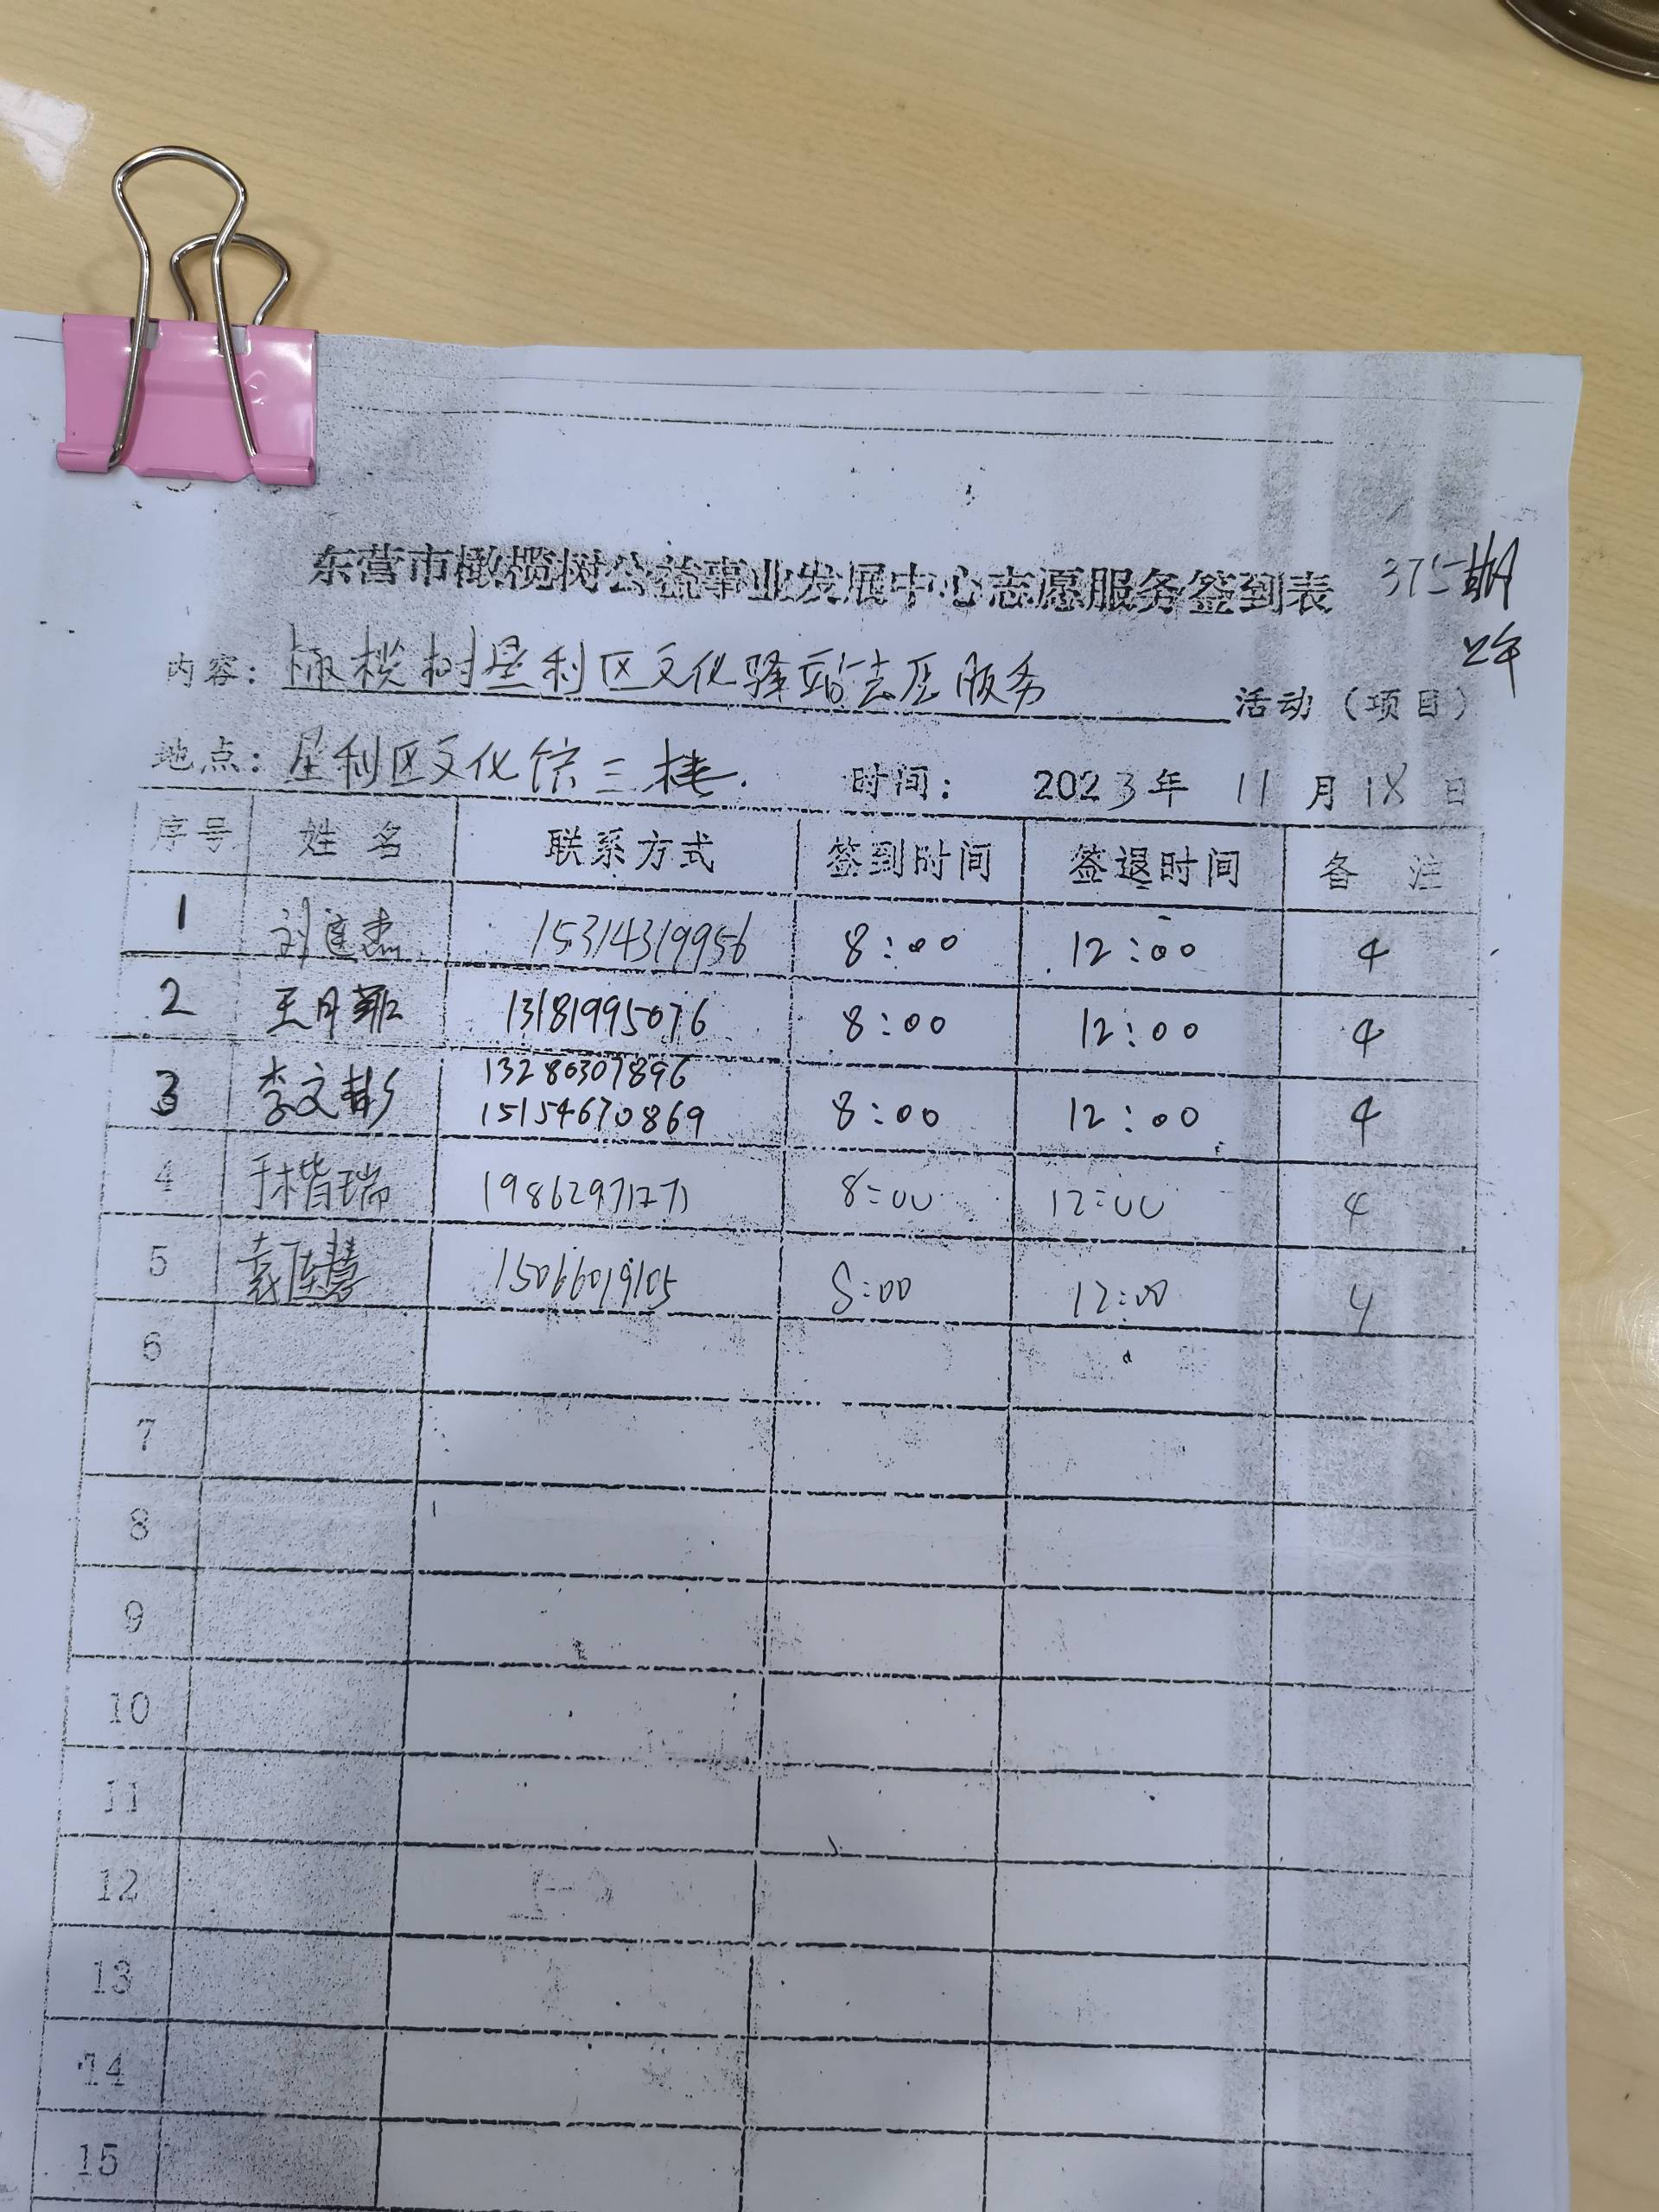 东营市橄榄树公益事业发展中心志愿服务签到表 375期
内容: 橄榄树垦利区文化驿站志愿服务 活动（项目）
地点: 垦利区文化馆三楼. 时间: 2023年 11月18日
序号 姓名 联系方式 签到时间 签退时间 备注
1 刘连杰 15314319956 8:00 12:00 4
2 王月 13181995076 8:00 12:00 4
3 李文彬 13280307896 15154670869 8:00 12:00 4
4 于楷瑞 8:00 12:00 4
5 袁 慧 15066019105 8:00 12:00 4
6
7
8
9
10
11
12
13
14
15